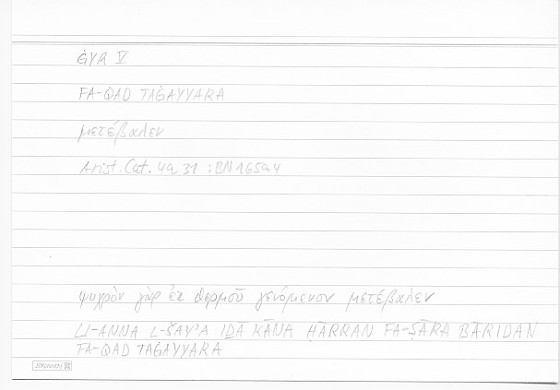 ĠYR V
FA-QAD TAĠAYYARA
μετέβαλεν
Arist. Cat. 4a 31 : BN 165a4
ψυχρὸν γὰρ ἐκ θερμοῦ γενόμενον μετέβαλεν
LI-ANNA L-ŠAY’A IḎĀ KĀNA ḤĀRRAN FA-ṢĀRA BĀRIDAN
FA-QAD TAĠAYYARA